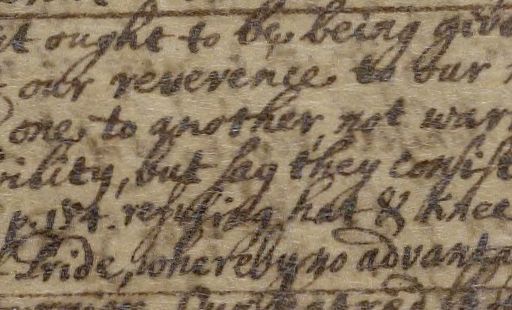 ought to be, being give
our reverence, to our
one, to another, not warr
ility, but say they consist
p. 154. refusing hat & knee
Pride, whereby no advanta